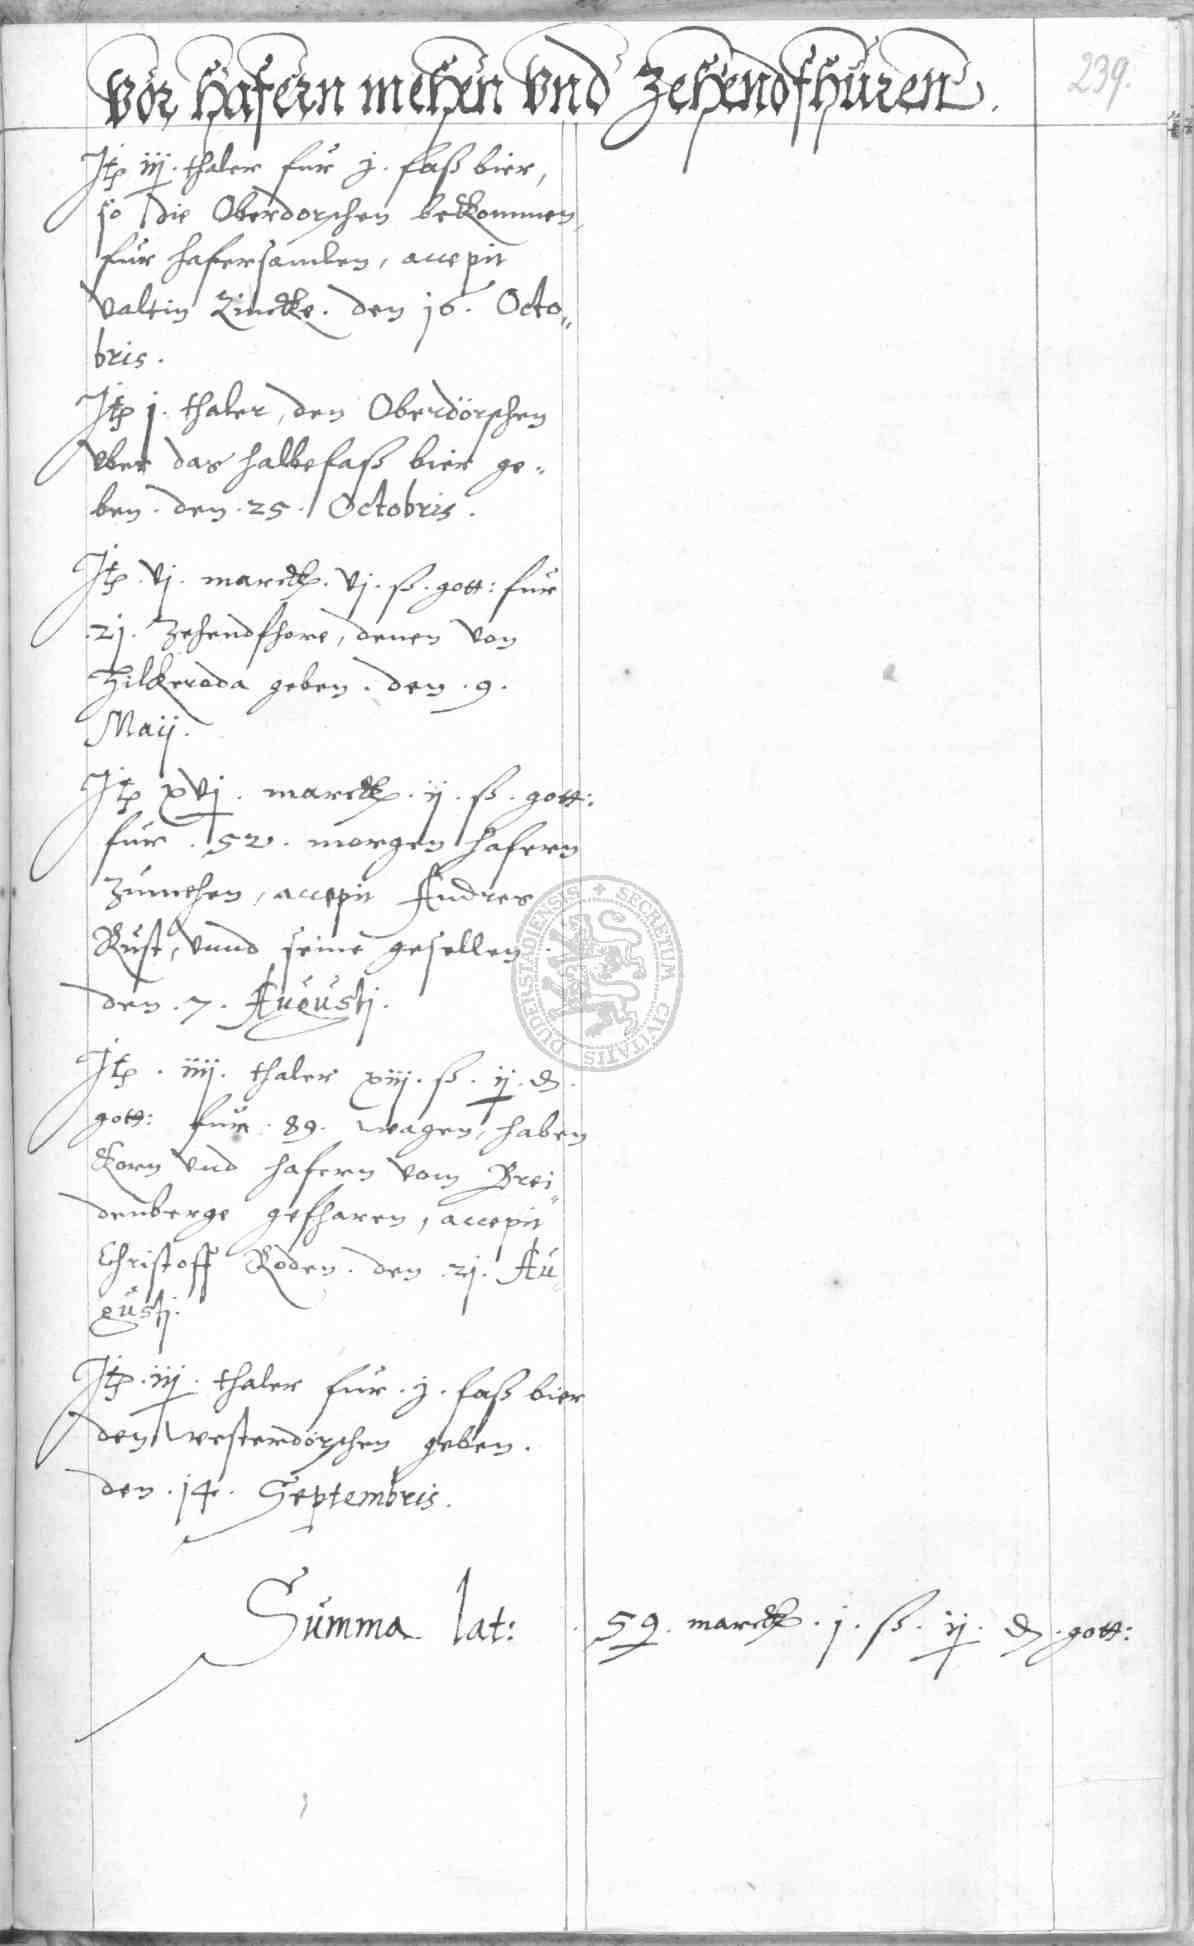 Vor Hafern mehen Vnd Zehendfhuren.
239.
Jtp iij. thaler fur j. faß bier,
so die Oberdorschen bekommen,
fur hafersamlen, accepit
Valtin Zincke. den 16. Octo„
bris.
Jtp j. thaler, den Oberdörschen
vber das halbe faß bier ge„
ben. den. 25. Octobris.
Jtp. vj. marck. vj. ß. gott: fur
.21. Zehendfhore, denen von
Hilkeroda geben. den. 9.
Maij.
Jtp xvj. marck. ij. ß. gott:
fur. 52. morgen hafern
Zumehen, accepit Andres
Rust, vnnd seine gesellen.
den. 7. Augustj.
Jtp. iiij. thaler xiij. ß. ij. d.
gott: fur. 89. wagen, haben
Korn vnd hafern vom Brei„
denberge gefharen, accepit
Christoff Roden. den. 21. Au„
gustj.
Jtp. iij. thaler fur. j. faß bier
den westerdörschen geben.
den. 14. Septembris.
Summa lat: . 59. marck. j. ß. ij. d. gott:
SECRETUM CIVITATIS DUDERSTADIENSIS